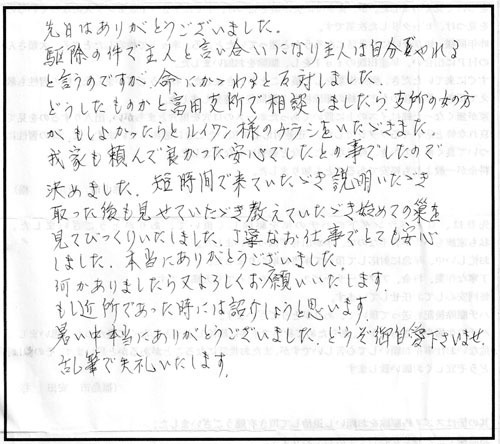 先日はありがとうございました。
駆除の件で主人と言い合いになり主人は自分でやれる
と言うのですが、命にかかわると反対しました。
どうしたものかと富田支所で相談しましたら、支所の女の方
が、もしよかったらとルイワン様のチラシをいただきました。
我家も頼んで良かった安心でしたとの事でしたので
決めました。短時間で来ていただき説明いただき
取った後も見せていただき教えていただき始めての巣を
見てびっくりいたしました。丁寧なお仕事でとても安心
しました。本当にありがとうございました。
何かありましたら又よろしくお願いいたします
もし近所であった時には紹介しようと思います。
暑い中本当にありがとうございました。どうぞ御自愛下さいませ
乱筆で失礼いたします。